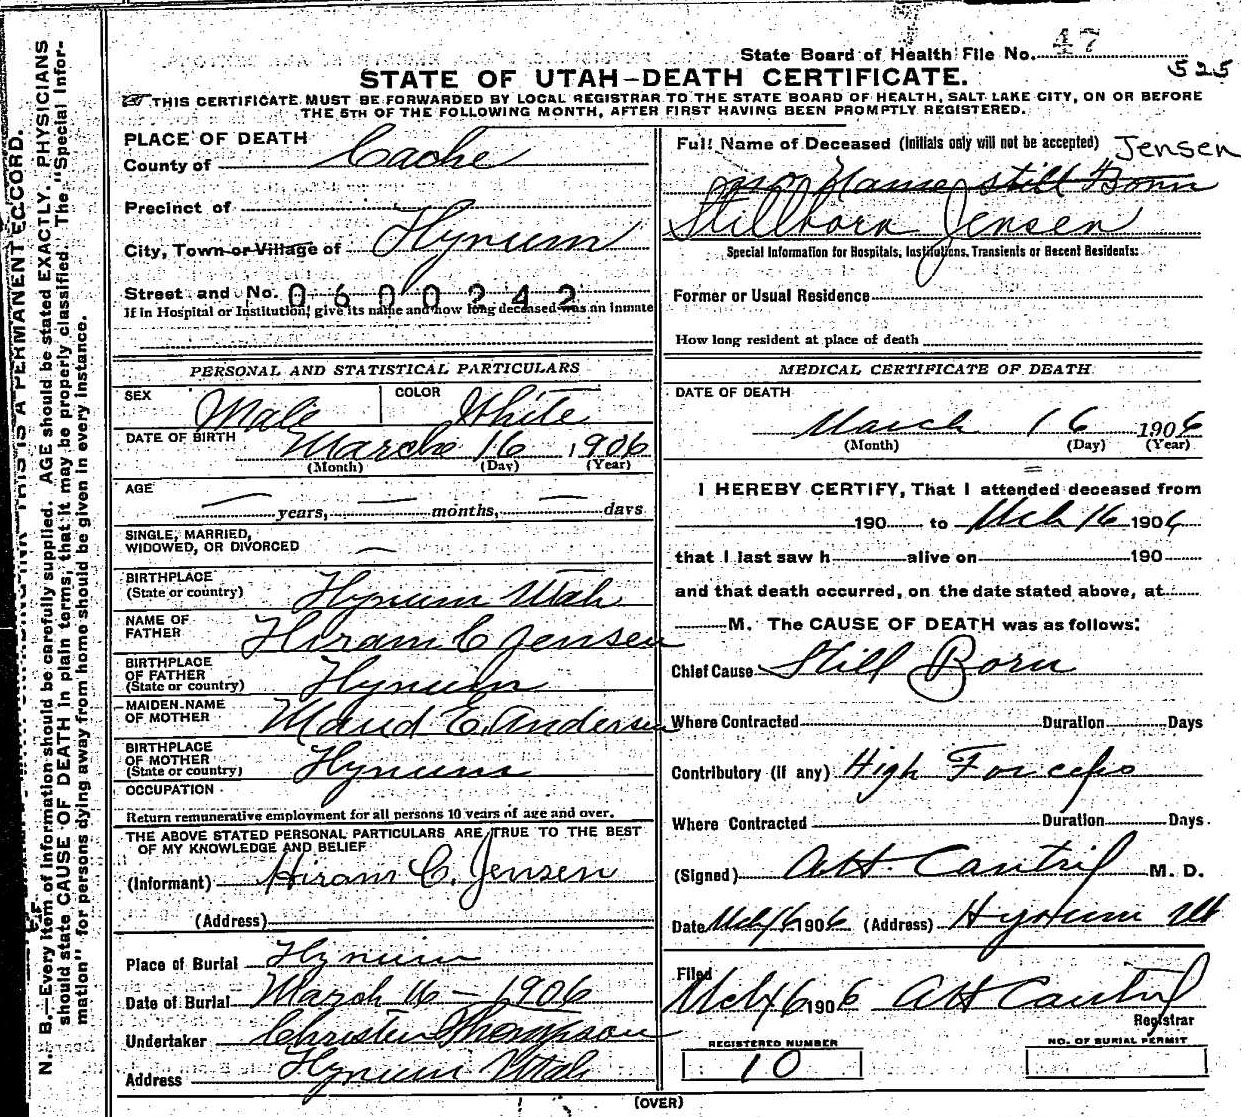 State Board of Health File No. 47
525
STATE OF UTAH—DEATH CERTIFICATE.
THIS CERTIFICATE MUST BE FORWARDED BY LOCAL REGISTRAR TO THE STATE BOARD OF HEALTH, SALT LAKE CITY, ON OR BEFORE
THE 5TH OF THE FOLLOWING MONTH, AFTER FIRST HAVING BEEN PROMPTLY REGISTERED.
PLACE OF DEATH
County of Cache
Precinct of
City, Town or Village of Hyrum
Street and No. 0600242
If in Hospital or Institution, give its name and how long deceased was an inmate
PERSONAL AND STATISTICAL PARTICULARS
SEX Male COLOR White
DATE OF BIRTH March 16 1906
(Month) (Day) (Year)
AGE
— years, — months, — days
SINGLE, MARRIED,
WIDOWED, OR DIVORCED —
BIRTHPLACE
(State or country) Hyrum Utah
NAME OF
FATHER Hiram C Jensen
BIRTHPLACE
OF FATHER
(State or country) Hyrum
MAIDEN NAME
OF MOTHER Maud E. Andersen
BIRTHPLACE
OF MOTHER
(State or country) Hyrum
OCCUPATION
Return remunerative employment for all persons 10 years of age and over.
THE ABOVE STATED PERSONAL PARTICULARS ARE TRUE TO THE BEST
OF MY KNOWLEDGE AND BELIEF
(Informant) Hiram C. Jensen
(Address)
Place of Burial Hyrum
Date of Burial March 16 – 1906
Undertaker Christen Thompson
Address Hyrum Utah
Full Name of Deceased (Initials only will not be accepted) Jensen
no Name still Born
Stillborn Jensen
Special Information for Hospitals, Institutions, Transients or Recent Residents:
Former or Usual Residence
How long resident at place of death
MEDICAL CERTIFICATE OF DEATH
DATE OF DEATH
March 16 1906
(Month) (Day) (Year)
I HEREBY CERTIFY, That I attended deceased from
190 to Mch 16 1906
that I last saw h alive on 190
and that death occurred, on the date stated above, at
M. The CAUSE OF DEATH was as follows:
Chief Cause Still Born
Where Contracted Duration Days
Contributory (if any) High Forceps
Where Contracted Duration Days.
(Signed) AH. Cantril M. D.
Date Mch 16 1906 (Address) Hyrum Ut
Filed
Mch 16 1906 AH Cantril
Registrar
REGISTERED NUMBER
10
NO. OF BURIAL PERMIT
(OVER)
N. B.—Every item of information should be carefully supplied. AGE should be stated EXACTLY. PHYSICIANS
should state CAUSE OF DEATH in plain terms, that it may be properly classified. The "Special Infor-
mation" for persons dying away from home should be given in every instance.
THIS IS A PERMANENT RECORD.